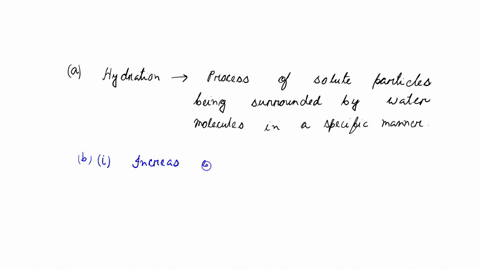 (a) Hydration → Process of solute particles
being surrounded by water
molecules in a specific manner.
(b) (i) Increas